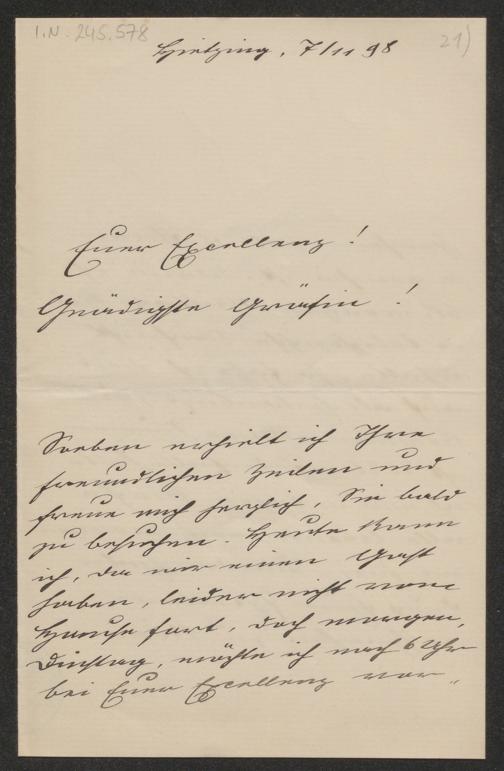 I.N. 245.578
21)
Hietzing, 7/11 98
Euer Excellenz!
Gnädigste Gräfin!
Soeben erhielt ich Ihre
freundlichen Zeilen und
freue mich herzlich, Sie bald
zu besuchen. Heute kann
ich, da wir einen Gast
haben, leider nicht vom
Hause fort, doch morgen,
Dinstag, möchte ich nach 6 Uhr
bei Euer Excellenz vor-